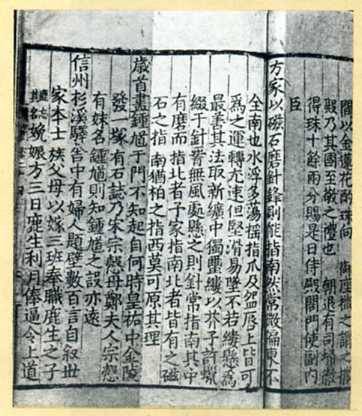 閣以金蓮花酌珠向 御座撒之謂之撒
殿乃其國至敬之禮也 朝退有司掃徹
得珠十餘兩分賜是日侍殿閤門使副内
臣
方家以磁石磨針鋒則能指南然常微偏東不
全南也水浮多蕩搖指爪及盌脣上皆可
爲之運轉尤速但堅滑易墜不若縷懸爲
最善其法取新纊中獨蠒縷以芥子許蠟
綴于針腰無風處懸之則針常指南其中
有磨而指北者予家指南北者皆有之磁
石之指南猶柏之指西莫可原其理
歲首畫鍾馗于門不知起自何時皇祐中金陵
發一塚有石誌乃宋宗慤母鄭夫人宗慤
有妹名鍾馗則知鍾馗之設亦遠
信州杉溪驛舍中有婦人題壁數百言自叙世
家本士族父母以嫁三班奉職鹿生之子
鹿忘其名娩娠方三日鹿生利月俸逼令上道